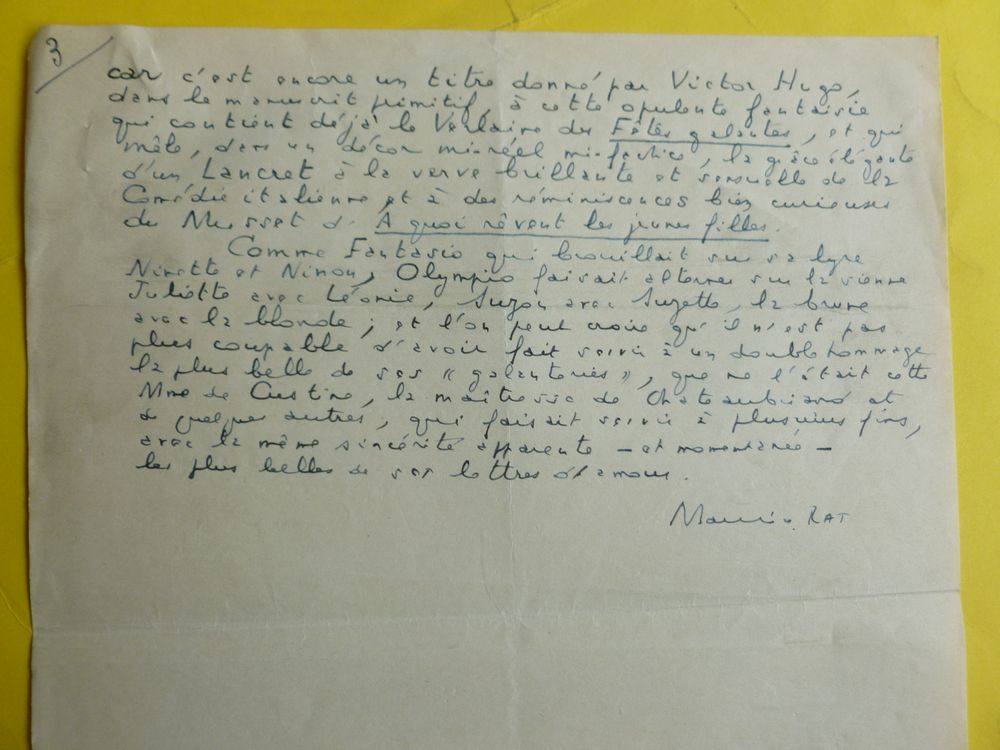 3
car c'est encore un titre donné par Victor Hugo,
dans le manuscrit primitif, à cette opulente fantaisie
qui contient déjà le Verlaine des Fêtes galantes, et qui
mêle, dans un décor mi-réel mi-factice, la grâce élégante
d'un Lancret à la verve brillante et sensuelle de la
Comédie italienne et à des réminiscences bien curieuses
du Musset d'A quoi rêvent les jeunes filles.
Comme Fantasio qui brouillait sur sa lyre
Ninette et Ninon, Olympio faisait alterner sur la sienne
Juliette avec Léonie, Suzon avec Suzette, la brune
avec la blonde ; et l'on peut croire qu'il n'est pas
plus coupable d'avoir fait servir à un double hommage
la plus belle de ses « galanteries », que ne l'était cette
Mme de Custine, la maîtresse de Chateaubriand et
de quelques autres, qui faisait servir à plusieurs fins,
avec la même sincérité apparente — et momentanée —
les plus belles de ses lettres d'amour.
Maurice RAT